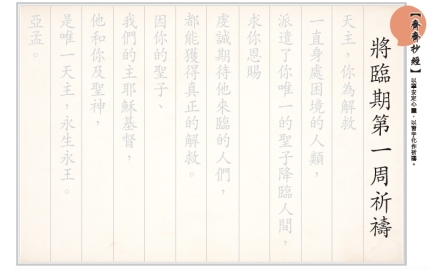 【齊齊抄經】
以筆安定心靈，以書字化作祈禱。
將臨期第一周祈禱
天主，你為解救
一直身處困境的人類，
派遣了你唯一的聖子降臨人間，
求你恩賜
虔誠期待他來臨的人們，
都能獲得真正的解救。
因你的聖子、
我們的主耶穌基督，
他和你及聖神，
是唯一天主，永生永王。
亞孟。